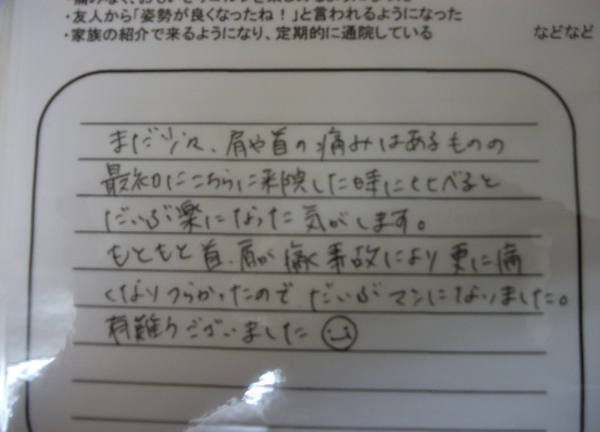 ・友人から「姿勢が良くなったね！」と言われるようになった
・家族の紹介で来るようになり、定期的に通院している　などなど
まだ少々、肩や首の痛みはあるものの
最初にこちらに来院した時にくらべると
だいぶ楽になった気がします。
もともと首、肩が痛く事故により更に痛
くなりつらかったのでだいぶマシになりました。
有難うございました